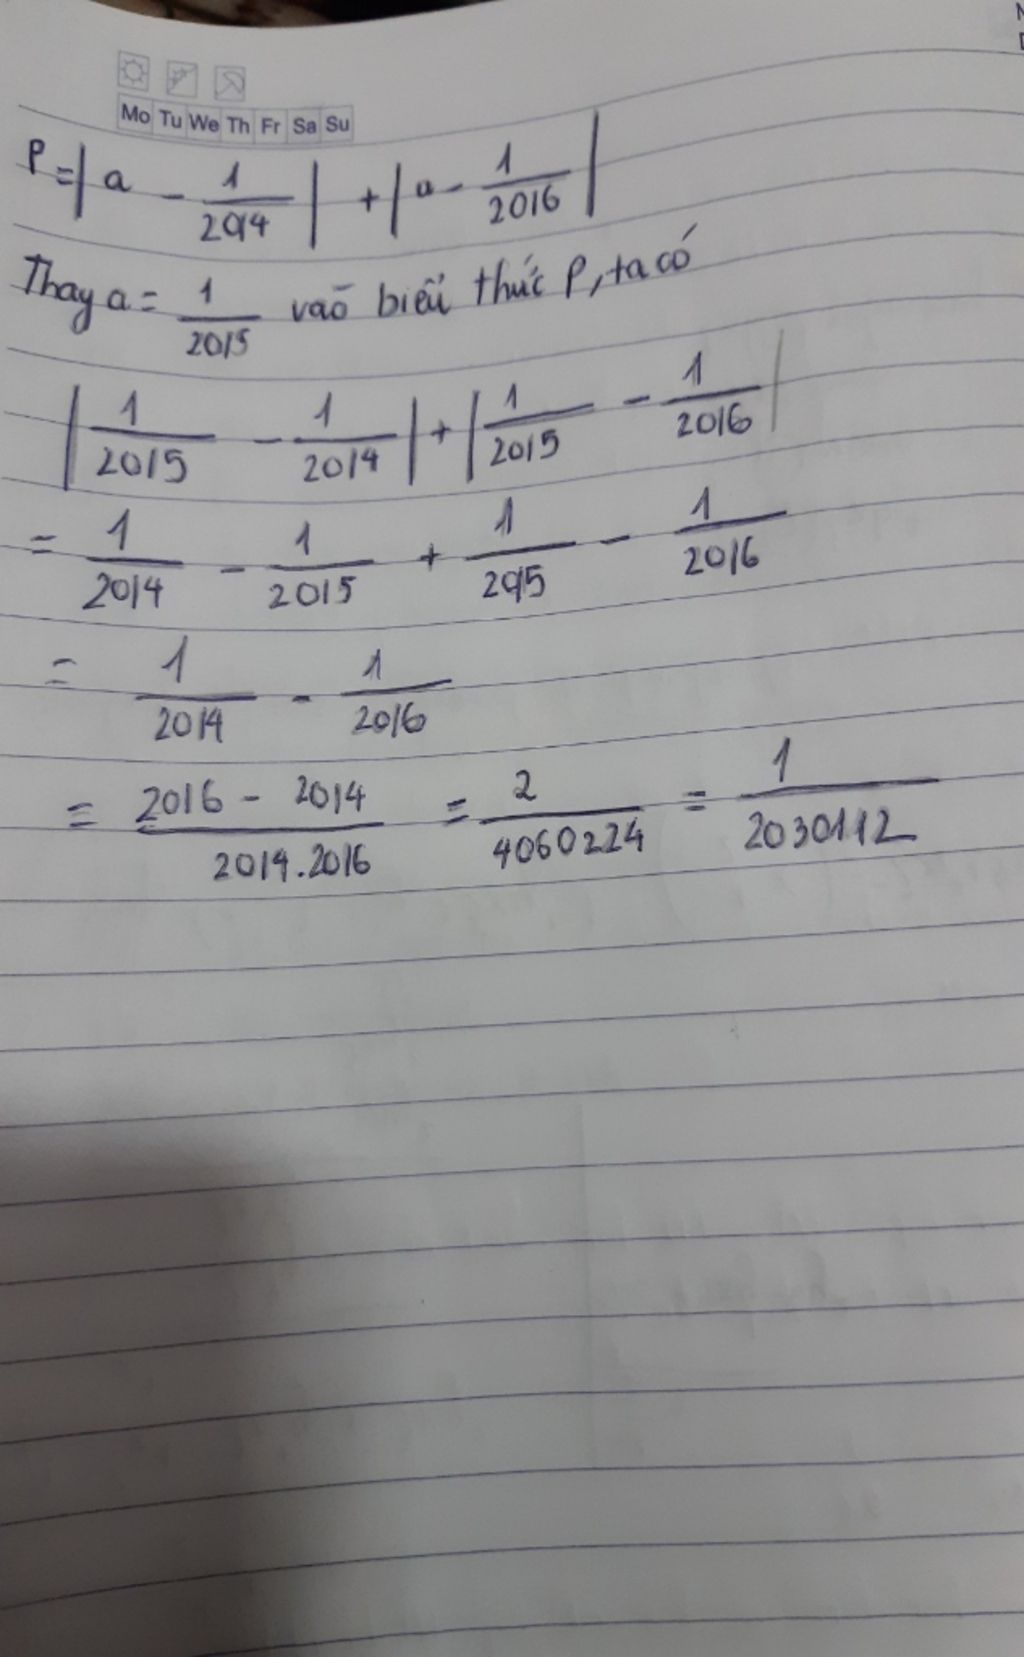 Mo Tu We Th Fr Sa Su
P = | a - 1/2014 | + | a - 1/2016 |
Thay a = 1/2015 vào biểu thức P, ta có
| 1/2015 - 1/2014 | + | 1/2015 - 1/2016 |
= 1/2014 - 1/2015 + 1/2015 - 1/2016
= 1/2014 - 1/2016
= 2016 - 2014/2014.2016 = 2/4060224 = 1/2030112